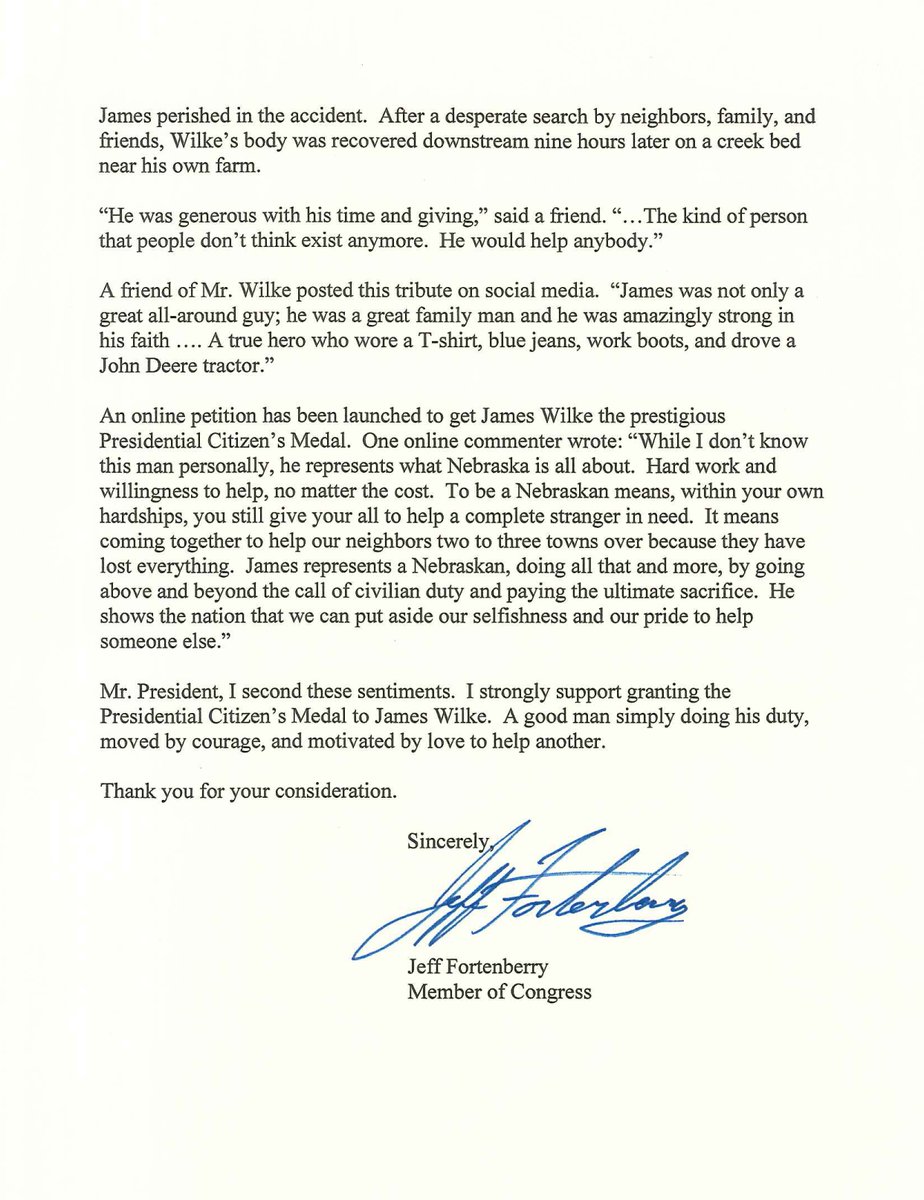 James perished in the accident.  After a desperate search by neighbors, family, and
friends, Wilke’s body was recovered downstream nine hours later on a creek bed
near his own farm.
“He was generous with his time and giving,” said a friend. “…The kind of person
that people don’t think exist anymore.  He would help anybody.”
A friend of Mr. Wilke posted this tribute on social media.  “James was not only a
great all-around guy; he was a great family man and he was amazingly strong in
his faith …. A true hero who wore a T-shirt, blue jeans, work boots, and drove a
John Deere tractor.”
An online petition has been launched to get James Wilke the prestigious
Presidential Citizen’s Medal.  One online commenter wrote: “While I don’t know
this man personally, he represents what Nebraska is all about.  Hard work and
willingness to help, no matter the cost.  To be a Nebraskan means, within your own
hardships, you still give your all to help a complete stranger in need.  It means
coming together to help our neighbors two to three towns over because they have
lost everything.  James represents a Nebraskan, doing all that and more, by going
above and beyond the call of civilian duty and paying the ultimate sacrifice.  He
shows the nation that we can put aside our selfishness and our pride to help
someone else.”
Mr. President, I second these sentiments.  I strongly support granting the
Presidential Citizen’s Medal to James Wilke.  A good man simply doing his duty,
moved by courage, and motivated by love to help another.
Thank you for your consideration.
Sincerely,
Jeff Fortenberry
Jeff Fortenberry
Member of Congress